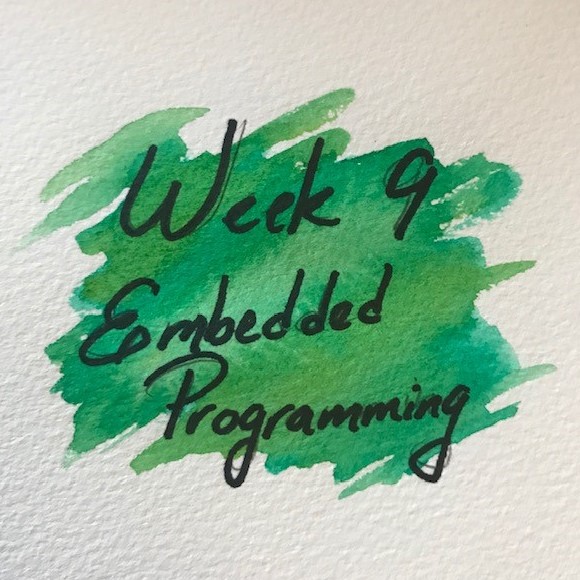 Week 9
Embedded
Programming